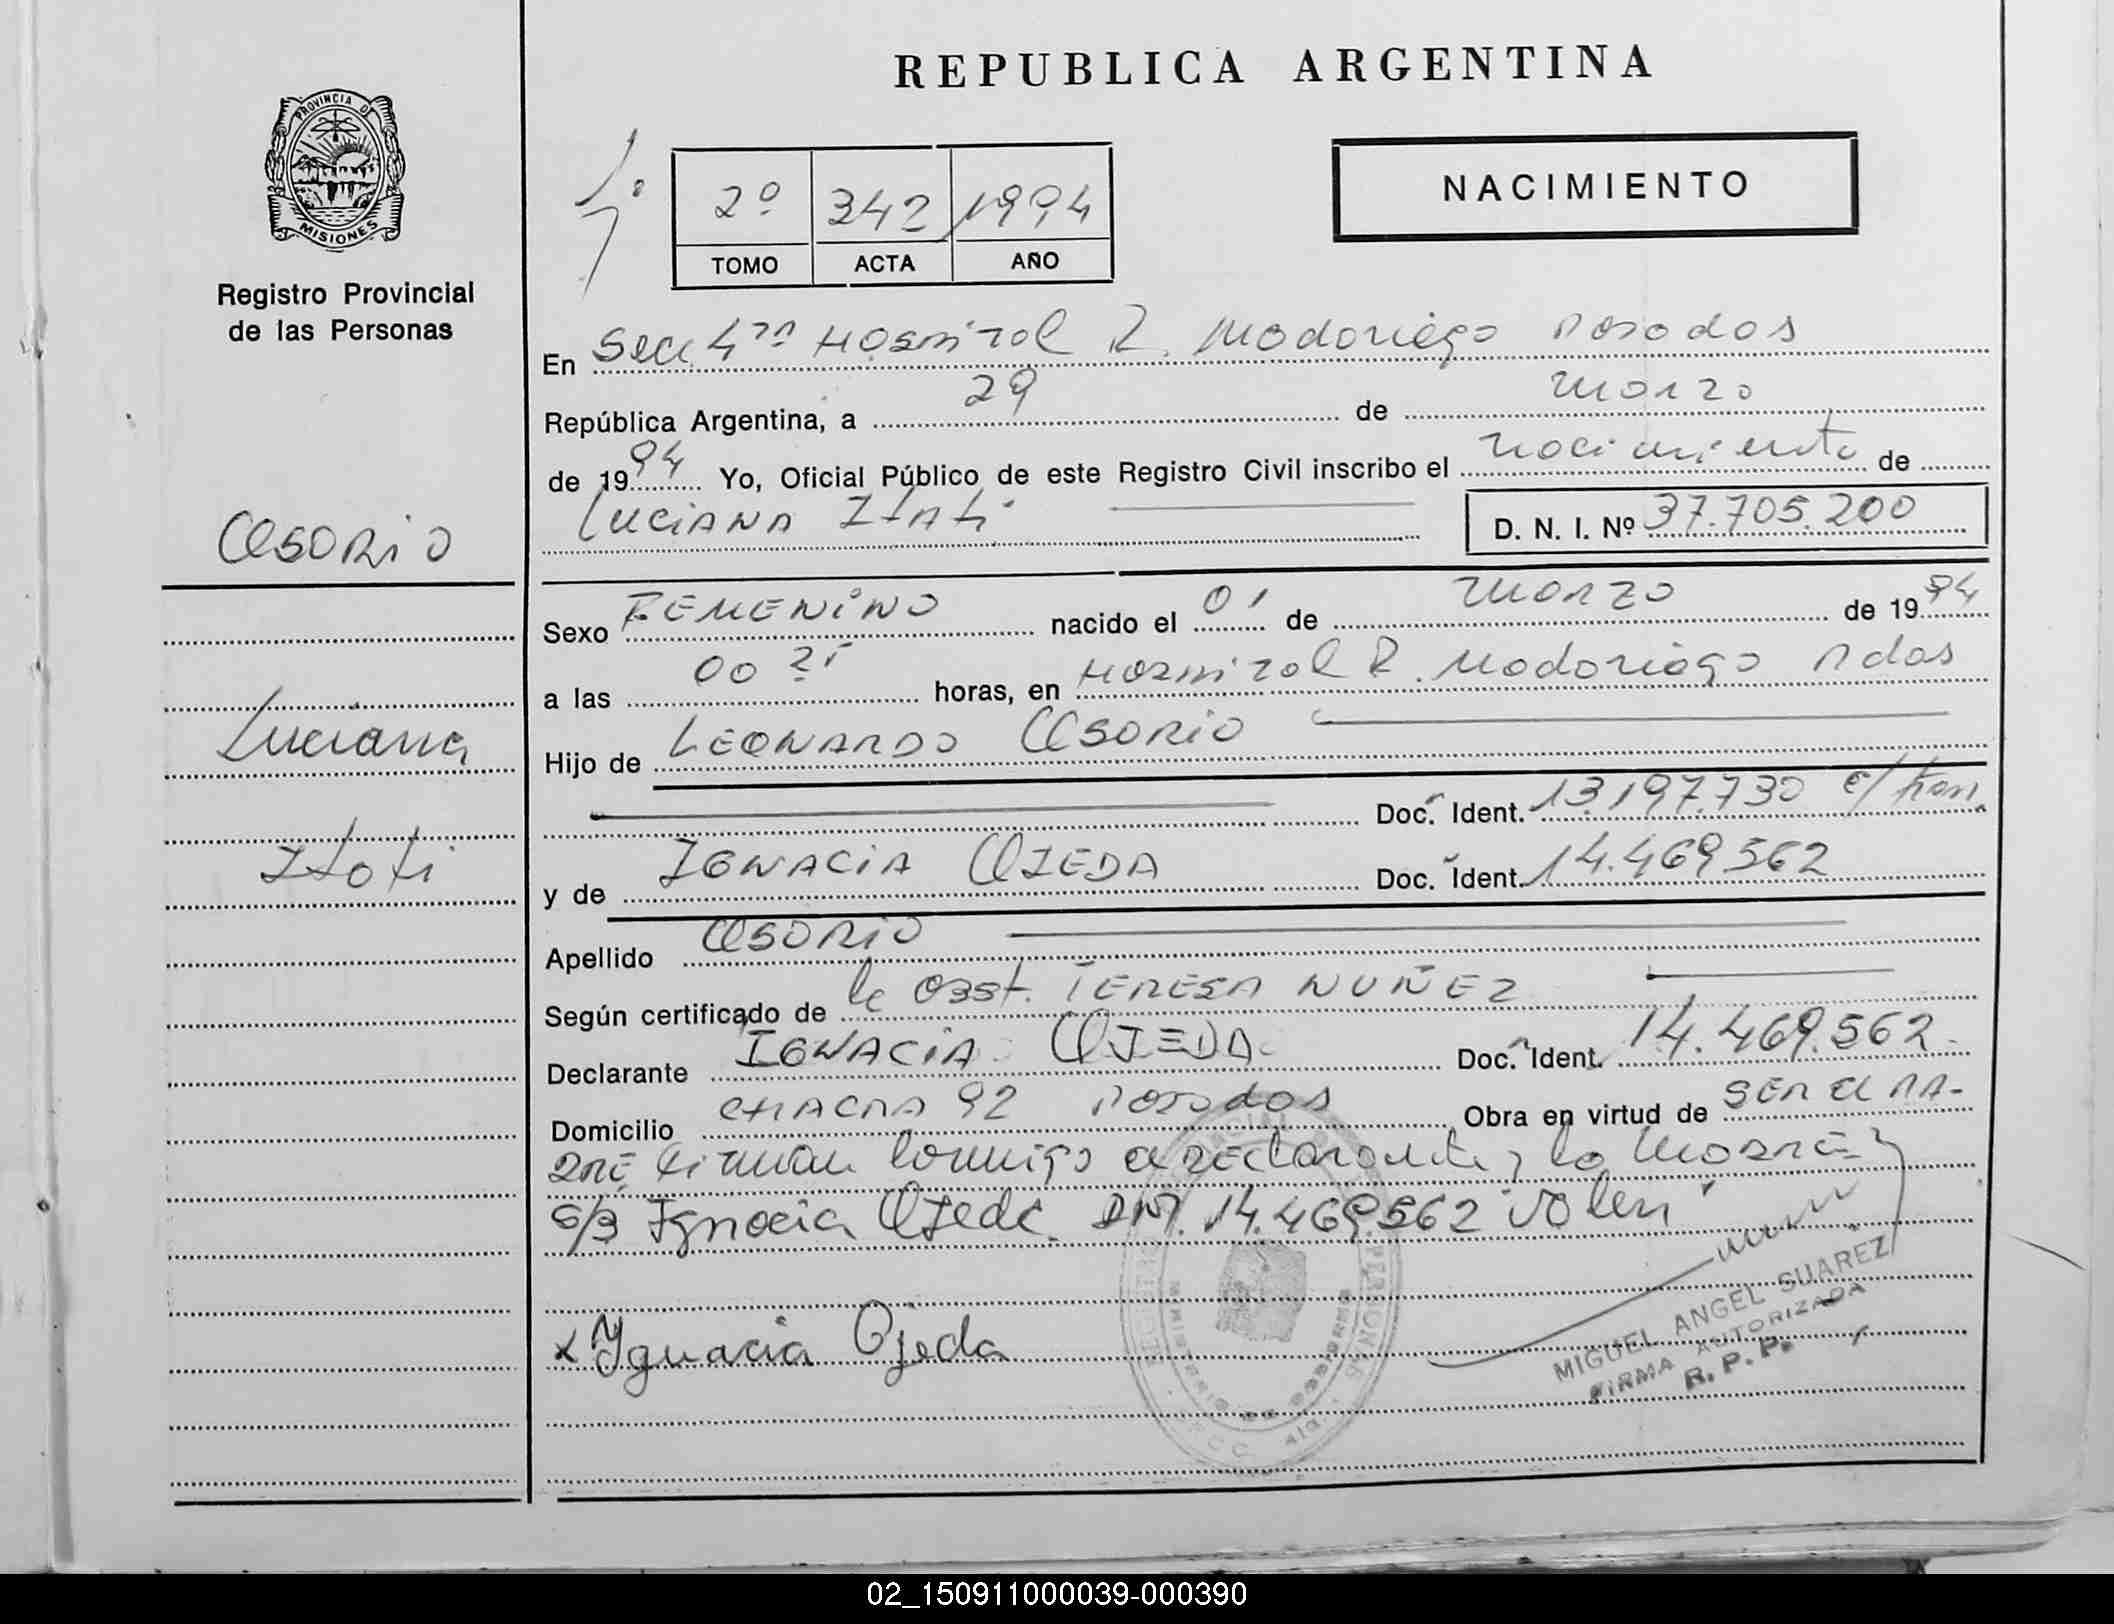 REPUBLICA ARGENTINA
PROVINCIA DE
MISIONES
Registro Provincial
de las Personas
2º 342 1994
TOMO ACTA AÑO
NACIMIENTO
En Secc. 4ta Hospital R. Madariaga Posadas
República Argentina, a 29 de Marzo
de 1994 Yo, Oficial Público de este Registro Civil inscribo el nacimiento de
LUCIANA Itati
D. N. I. Nº 37.705.200
OSORIO
Luciana
Itati
Sexo FEMENINO nacido el 01 de Marzo de 1994
a las 00 horas, en Hospital R. Madariaga Pdas
Hijo de LEONARDO OSORIO
Doc. Ident. 13.197.730
y de IGNACIA OJEDA Doc. Ident. 14.469.562
Apellido OSORIO
Según certificado de la Obst. TERESA NUÑEZ
Declarante IGNACIA OJEDA Doc. Ident. 14.469.562
Domicilio CHACRA 92 Posadas Obra en virtud de SER El PA-
DRE, firman conmigo declarante y la MADRE
s/s Ignacia Ojeda DNI. 14.469562 valen
x Ygnacia Ojeda
MIGUEL ANGEL SUAREZ
FIRMA AUTORIZADA
R. P. P.
02_150911000039-000390